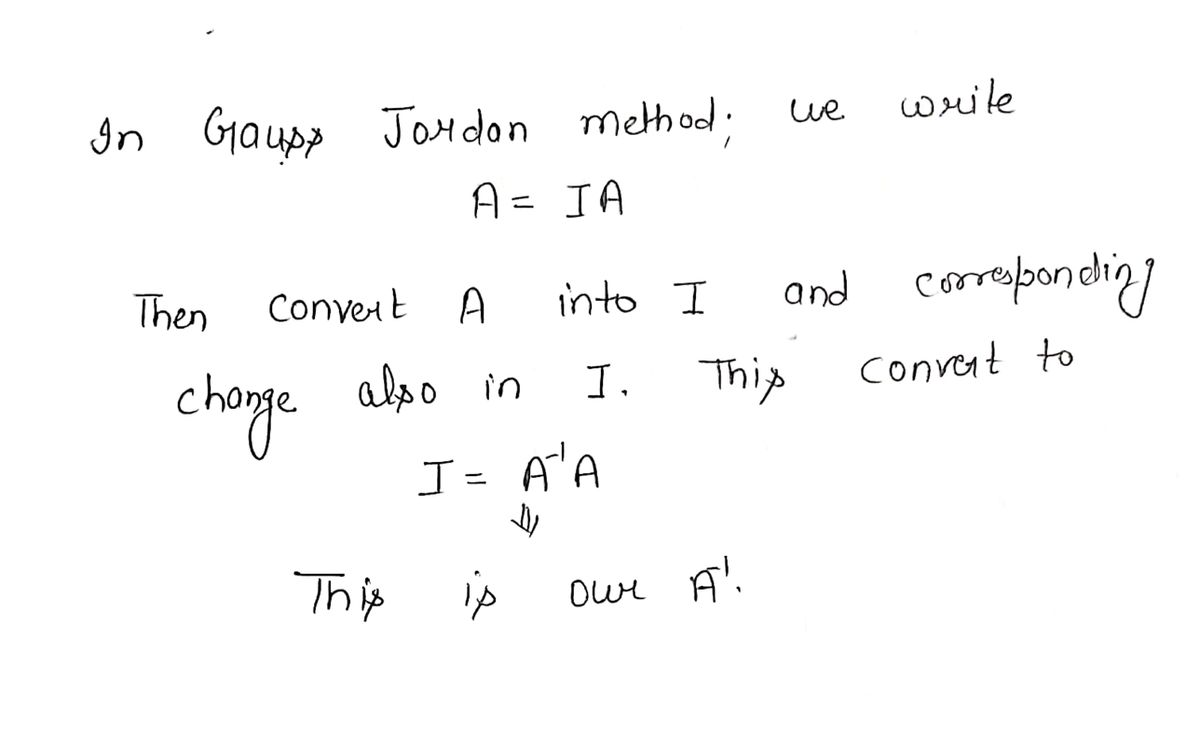 In Gauss Jordan method; we write
A = IA
Then convert A into I and corresponding
change also in I. This convert to
I = A⁻¹A
⇓
This is our A⁻¹.